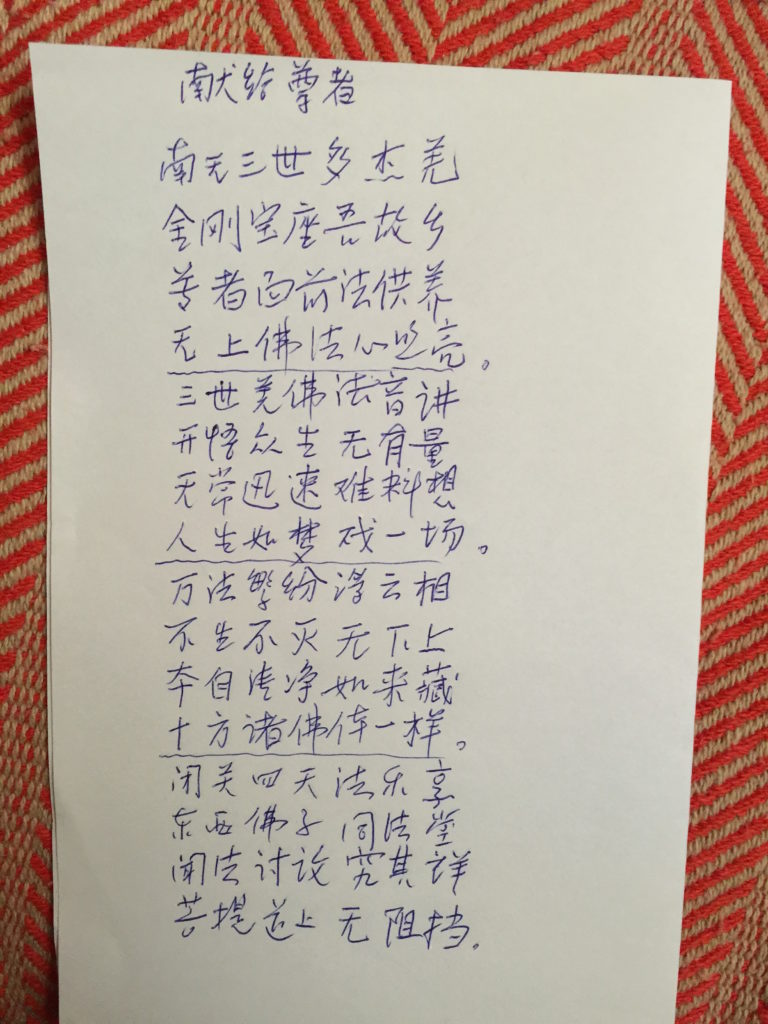 献给尊者
南无三世多杰羌
金刚宝座吾故乡
尊者面前法供养
无上佛法心照亮。
三世羌佛法音讲
开悟众生无有量
无常迅速难料想
人生如梦戏一场。
万法繁纷浮云相
不生不灭无下上
本自清净如来藏
十方诸佛体一样。
闭关四天法乐享
东西佛子同法堂
闻法讨论究其详
菩提道上无阻挡。